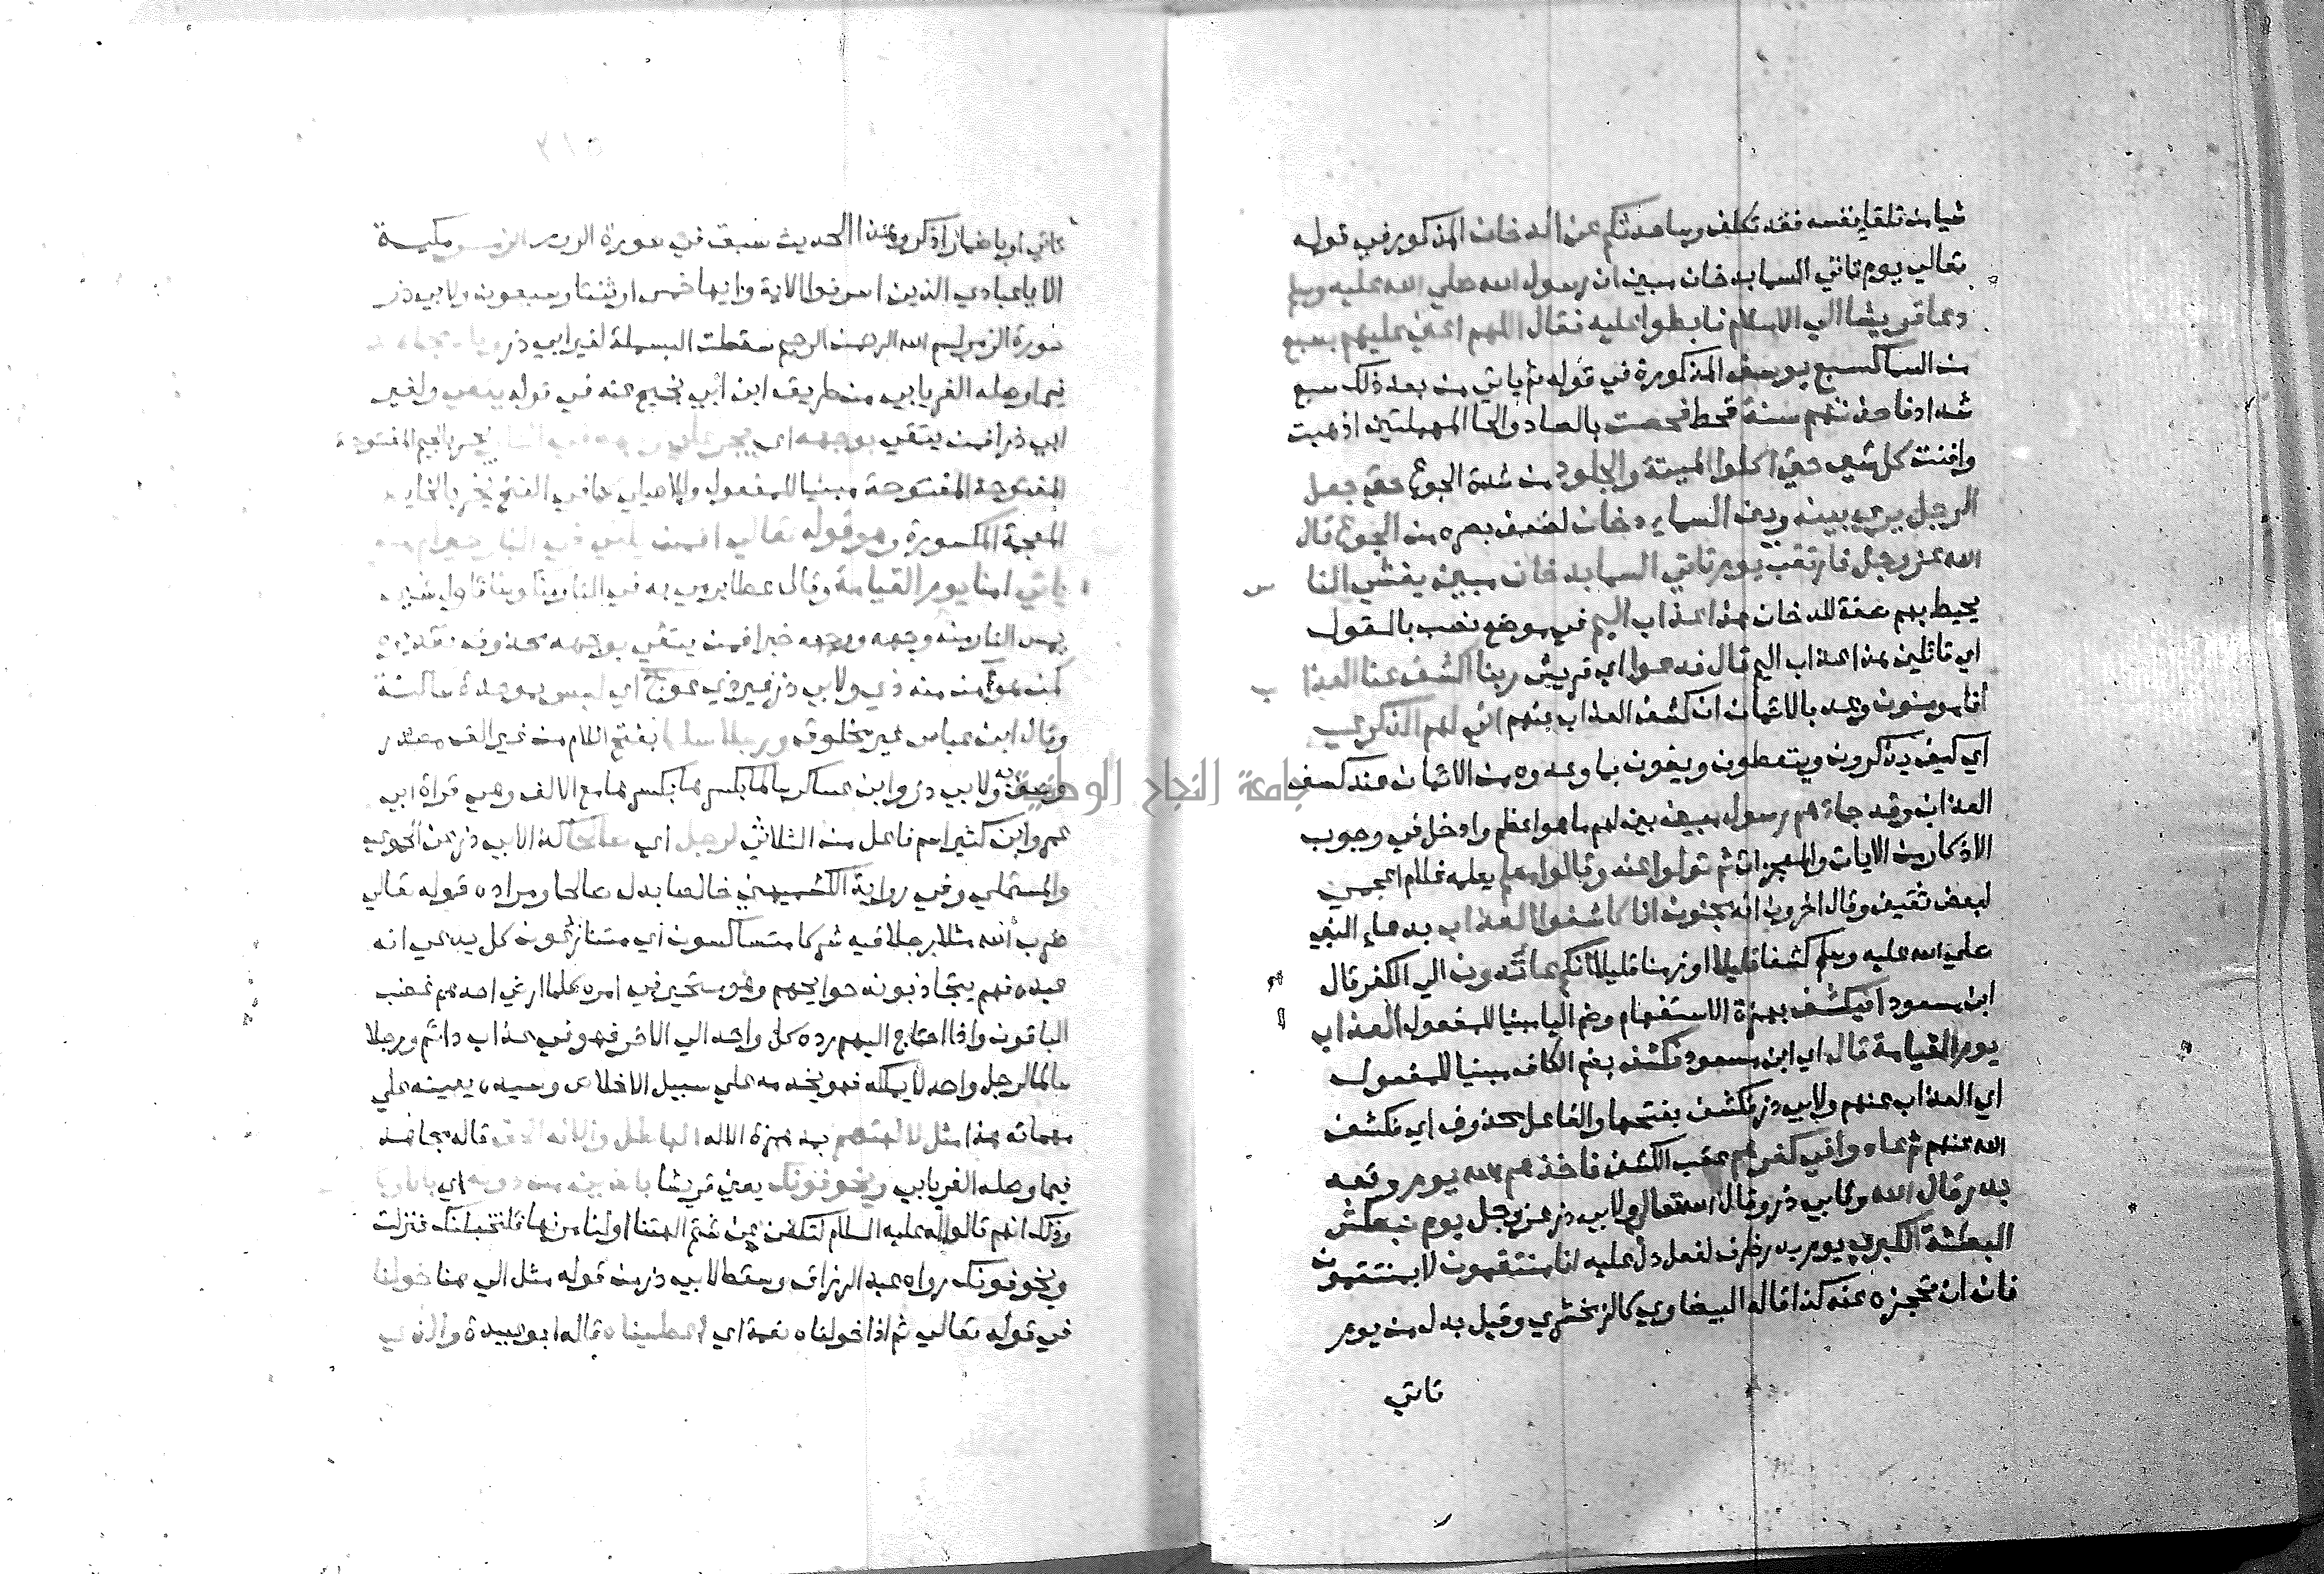 شيا من تلقا نفسه فقد تكلف وساحدثكم عن الدخان المذكور في قوله
تعالى يوم تاتي السما بدخان مبين ان رسول الله صلي الله عليه وسلم
دعا قريشا الي الاسلام فابطوا عليه فقال اللهم اعني عليهم بسبع
من السما كسبع يوسف المذكورة في قوله ثم ياتي من بعد ذلك سبع
شداد فاخذتهم سنة قحط فحصت بالصاد والحا المهملتين اذهبت
وافنت كل شي حتي اكلوا الميتة والجلود من شدة الجوع حتي جعل
الرجل يري بينه وبين السماء دخان لضعف بصره من الجوع قال
الله عز وجل فارتقب يوم تاتي السما بدخان مبين يغشي النا س
يحيط بهم صفة للدخان هذا عذاب اليم في موضع نصب بالقول
اي قائلين هذا عذاب اليم قال فدعوا اي قريش ربنا اكشف عنا العذا ب
انا مومنون وعد بالايمان ان كشف العذاب عنهم اني لهم الذكري
اي كيف يذكرون ويتعظون ويفون بما وعدوه من الايمان عند كشف
العذاب وقد جاءهم رسول مبين بين لهم ما هو اعظم وادخل في وجوب
الاذكار من الايات والمعجزات ثم تولوا عنه وقالوا معلم يعلمه غلام اعجمي
لبعض ثقيف وقال اخرون انه مجنون انا كاشفوا العذاب بدعاء النبي
صلي الله عليه وسلم كشفا قليلا او زمنا قليلا انكم عائدون الي الكفر قال
ابن مسعود افيكشف بهمزة الاستفهام وضم اليا مبنيا للمفعول العذاب
يوم القيامة قال اي ابن مسعود فكشف بضم الكاف مبنيا للمفعول
اي العذاب عنهم ولابي ذر فكشف بفتحها والفاعل محذوف اي فكشف
الله عنهم ثم عادوا في كفرهم عقب الكشف فاخذهم الله يوم وقعه
بدر قال الله ولابي ذر وقال الله تعالي ولابي ذر عز وجل يوم نبطش
البطشة الكبري يوم بدر ظرف لفعل دل عليه انا منتقمون لا بمنتقمون
فان ان تحجزه عنه كذا قاله البيضاوي كالزمخشري وقيل بدل من يوم
تاتي
تاتي او باضمار اذكر وهذا الحديث سبق في سورة الروم الزمر مكية
الا يا عبادي الذين اسرفوا الاية وايها خمس او ثنتا وسبعون ولابي ذر
سورة الزمر بسم الله الرحمن الرحيم سقطت البسملة لغير ابي ذر
فيما وصله الفريابي من طريق ابن ابي نجيح عنه في قوله يتقي ولغير
ابي ذر افمن يتقي بوجهه اي يجر علي وجهه في النار يجر بالجيم المفتوحة
المفتوحة مبنيا للمفعول وللاصيلي كما في الفتح يخر بالخاء
المعجمة المكسورة وهو قوله تعالي افمن يلقي في النار خير ام من
ياتي امنا يوم القيامة وقال عطا يرمي به في النار
يمس النار منه وجهه وخبر افمن يتقي بوجهه محذوف تقديره
كمن هو آمن منه ذي ولابي ذر غير ذي عوج اي لبس بموحدة ساكنة
وقال ابن عباس غير مخلوق ورجلا سلما بفتح اللام من غير الف مصدر
وصف به ولابي ذر وابن عساكر سالما بكسرها مع الالف وهي قراة ابي
عمرو وابن كثير اسم فاعل من الثلاثي لرجل اي صالحا كذا لابي ذر عن الحموي
والمستملي وفي رواية الكشميهني خالصا بدل صالحا ومراده قوله تعالي
ضرب الله مثلا رجلا فيه شركا متشاكسون اي متنازعون كل يدعي انه
عبده فهم يتجاذبونه حوايجهم وهو متحير في امره كلما ارضي احدهم غضب
الباقون واذا احتاج اليهم رده كل واحد الي الاخر فهو في عذاب دائم ورجلا
سالما لرجل واحد لا يملكه فهو يخدمه علي سبيل الاخلاص وسيده يعينه علي
مهماته هذا مثل لالهتهم بمد همزة الاله الباطل والاله الحق قاله مجاهد
فيما وصله الفريابي ويخوفونك يعني قريشا بالذين من دونه اي بالاوثا
وذلك انهم قالوا له عليه السلام لتكفن عن شتم الهتنا او لنامرنها فلتخبلنك فنزلت
ويخوفونك رواه عبد الرزاق وسقط لابي ذر من قوله مثل الي هنا خولنا
في قوله تعالي ثم اذا خولناه نعمة اي اعطيناه قاله ابو عبيدة والذي
جامعة النجاح الوطنية